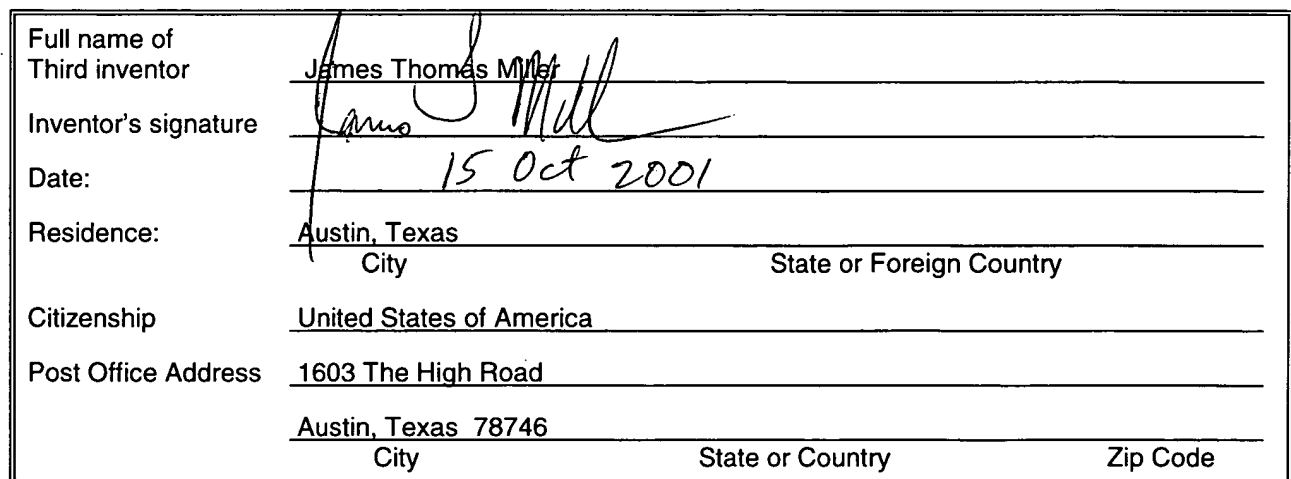 Full name of
Third inventor James Thomas Miller
Inventor's signature James T Mill
Date: 15 Oct 2001
Residence: Austin, Texas
City State or Foreign Country
Citizenship United States of America
Post Office Address 1603 The High Road
Austin, Texas 78746
City State or Country Zip Code